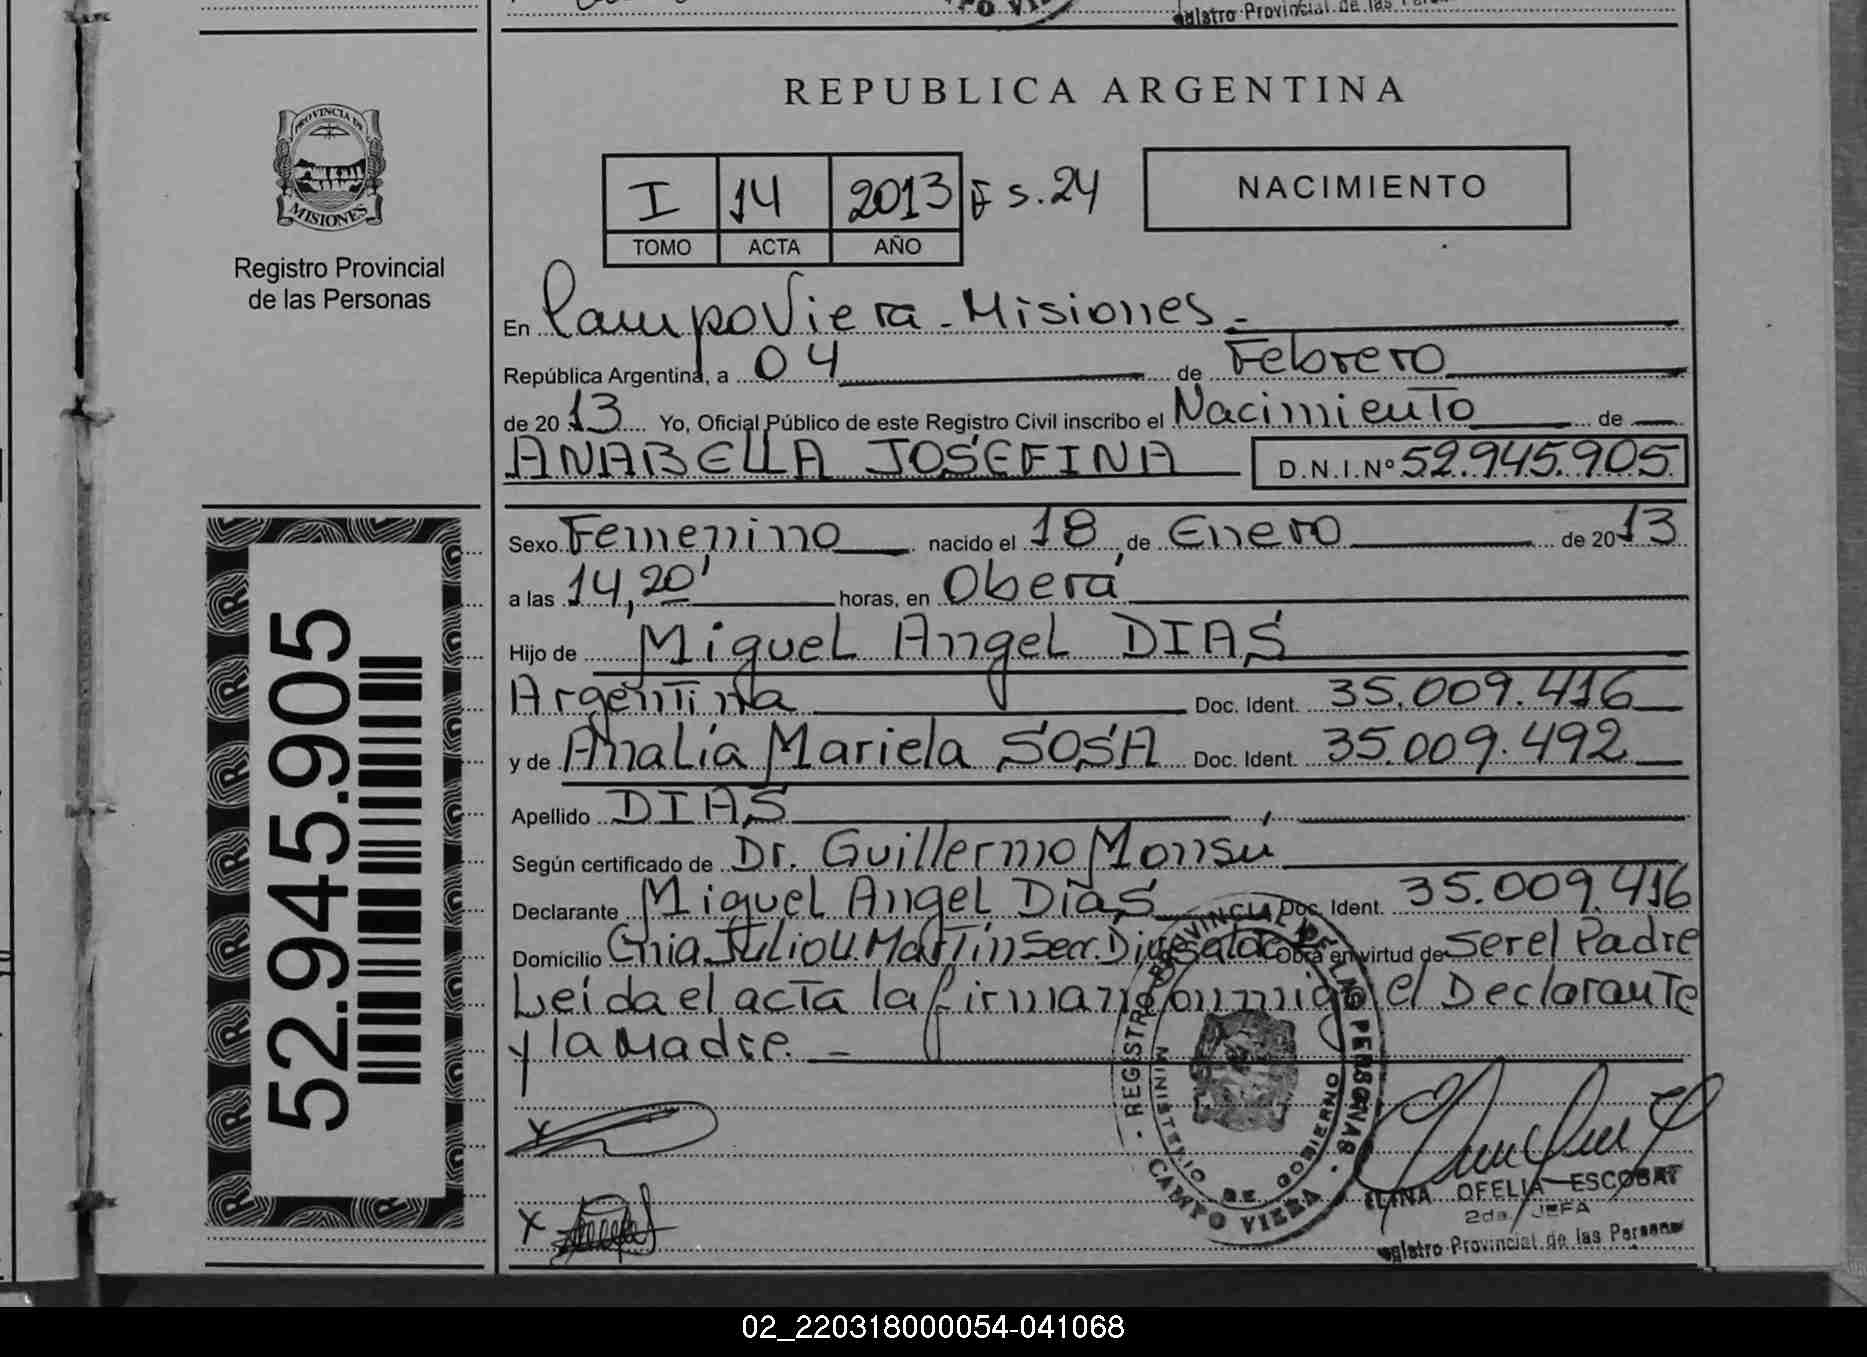 REPUBLICA ARGENTINA
PROVINCIA DE
MISIONES
Registro Provincial
de las Personas
I 14 2013 Fs. 24
TOMO ACTA AÑO
NACIMIENTO
En Campo Viera - Misiones -
República Argentina, a 04 de Febrero
de 2013 Yo, Oficial Público de este Registro Civil inscribo el Nacimiento de
ANABELLA JOSEFINA D.N.I.Nº 52.945.905
Sexo Femenino nacido el 18 de Enero de 2013
a las 14,20' horas, en Oberá
Hijo de Miguel Angel DIAS
Argentina Doc. Ident. 35.009.416
y de Analía Mariela SOSA Doc. Ident. 35.009.492
Apellido DIAS
Según certificado de Dr. Guillermo Monsú
Declarante Miguel Angel Dias Doc. Ident. 35.009.416
Domicilio Cnia. Julio U. Martin Secc. Obra en virtud de ser el Padre
Leída el acta la firman conmigo el Declarante
y la Madre. -
52.945.905
- REGISTRO PROVINCIAL DE LAS PERSONAS -
MINISTERIO DE GOBIERNO
CAMPO VIERA
OFELIA ESCOBAR
2da. JEFA
Registro Provincial de las Personas
02_220318000054-041068